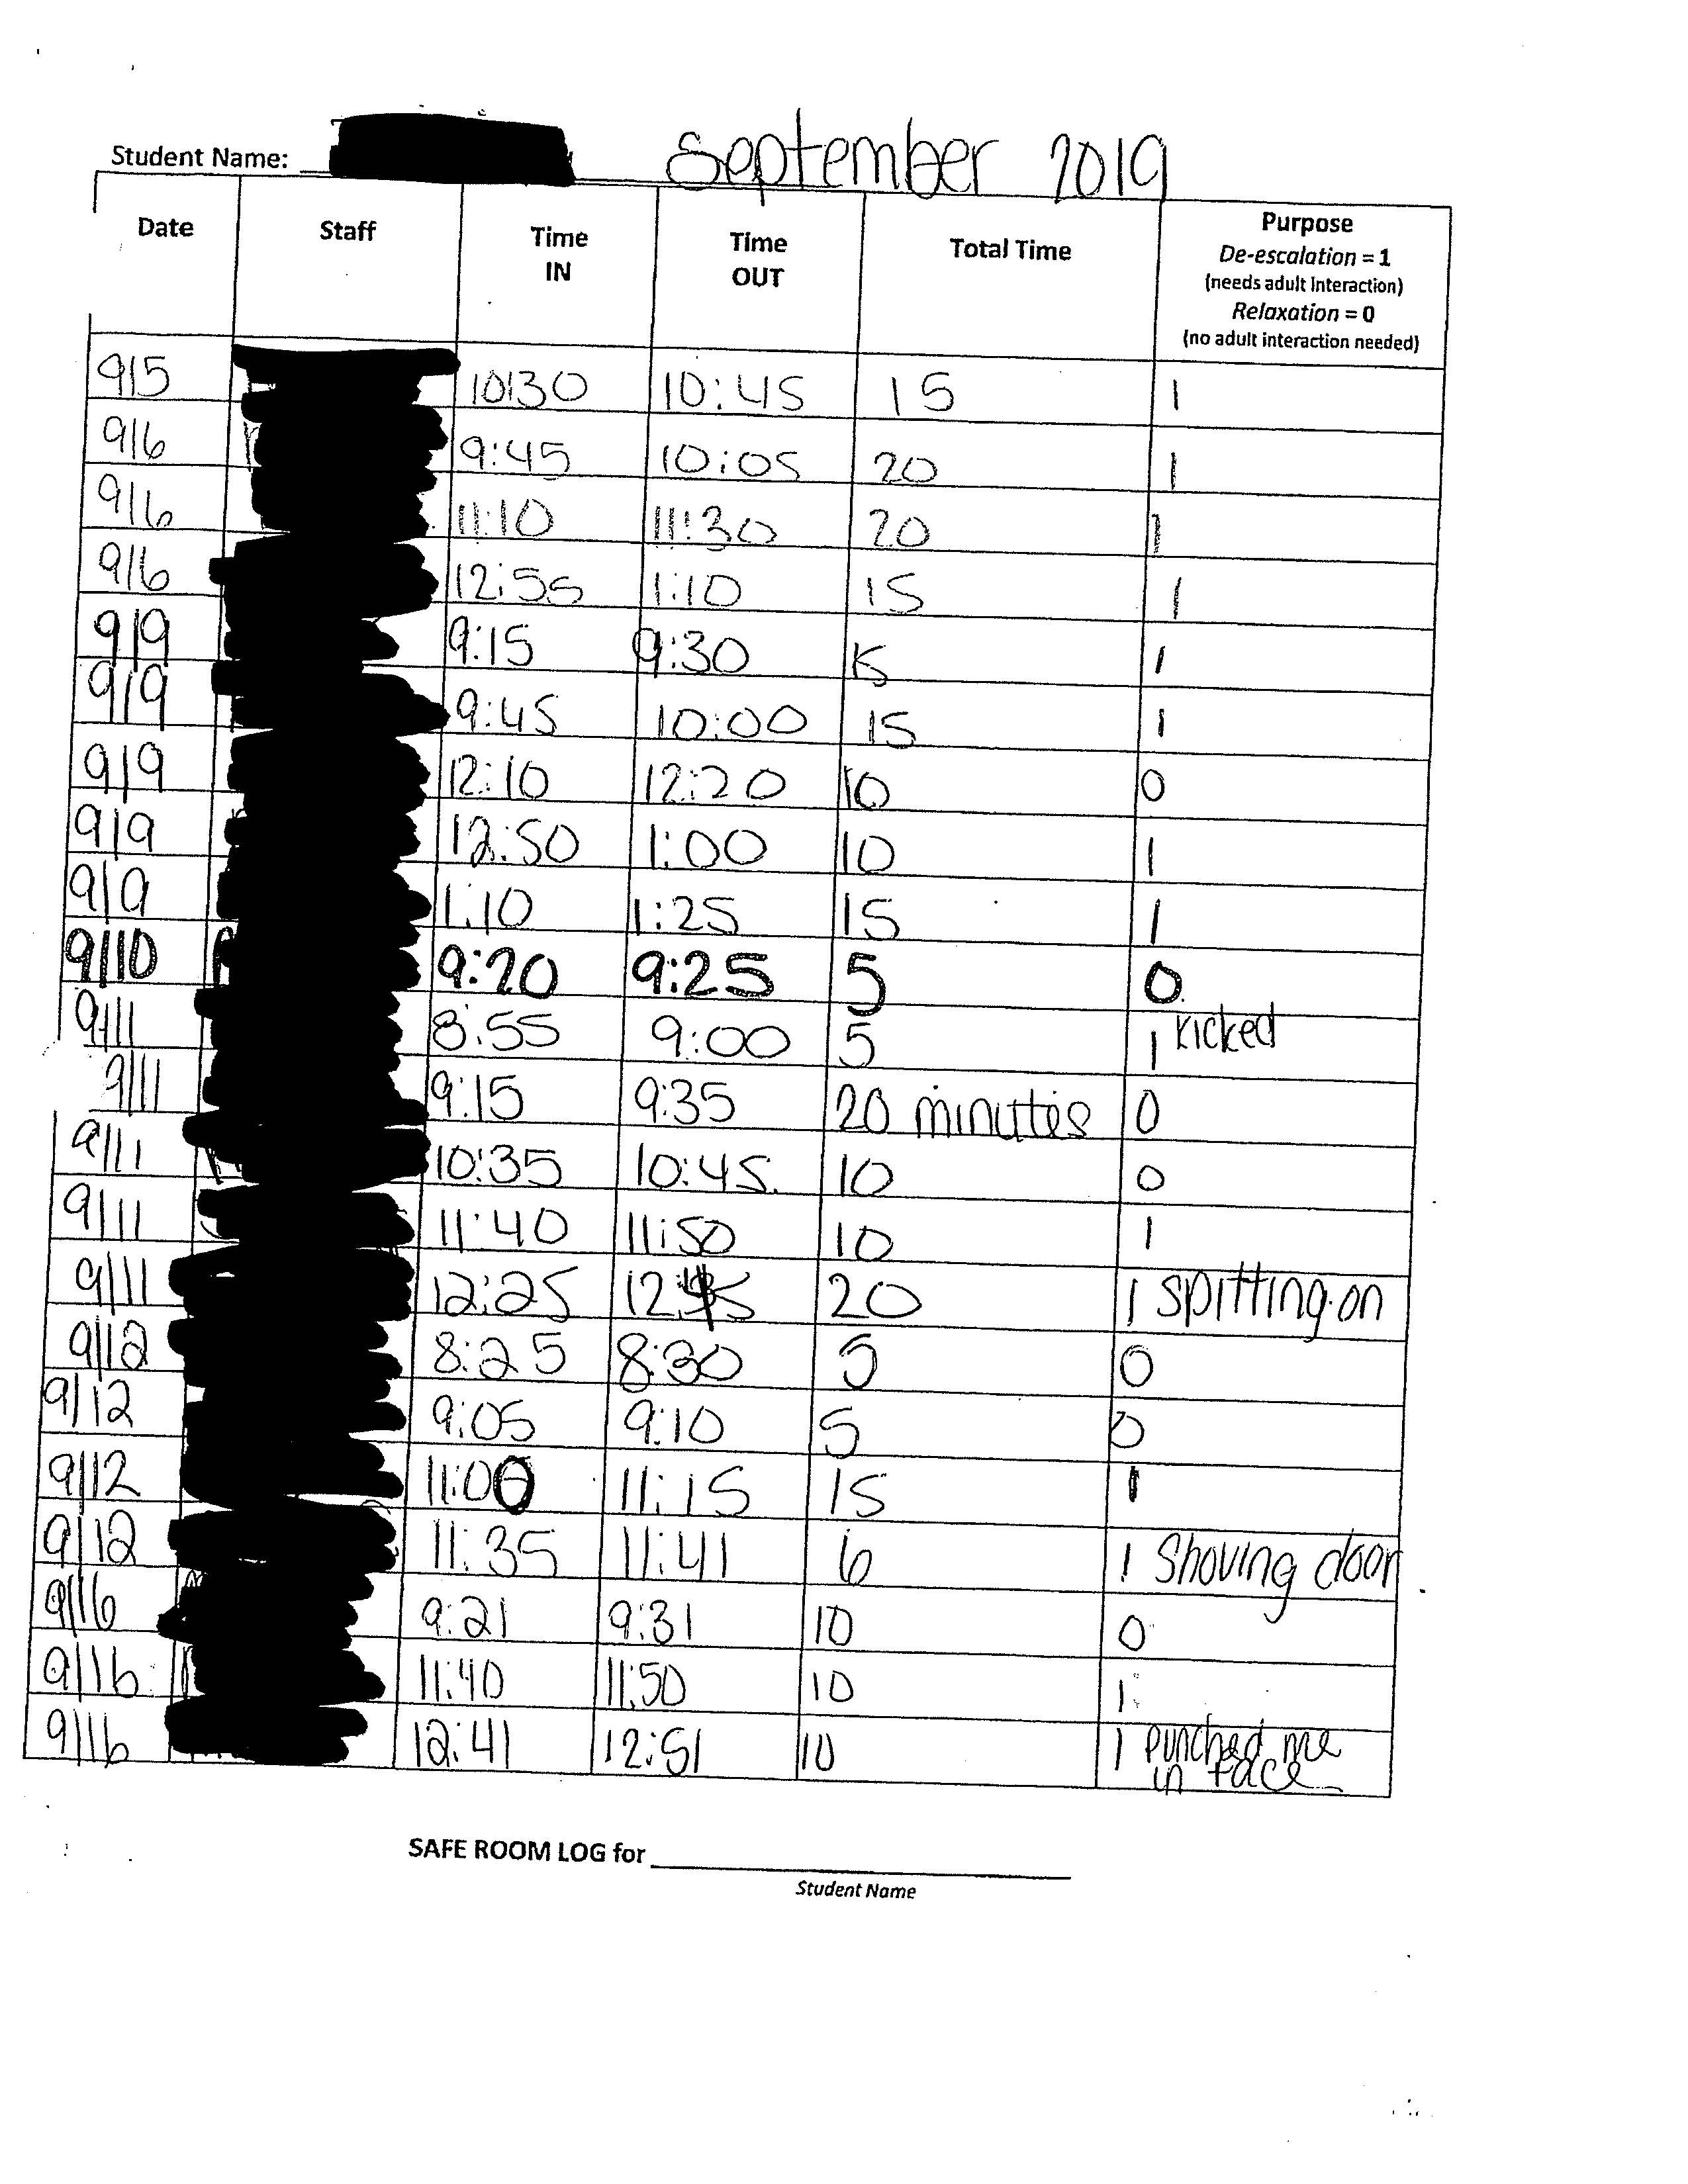 Student Name: September 2019
Date Staff Time IN Time OUT Total Time Purpose
De-escalation = 1
(needs adult Interaction)
Relaxation = 0
(no adult interaction needed)
9/5 10:30 10:45 15 1
9/6 9:45 10:05 20 1
9/6 11:10 11:30 20 1
9/6 12:55 1:10 15 1
9/9 9:15 9:30 15 1
9/9 9:45 10:00 15 1
9/9 12:10 12:20 10 0
9/9 12:50 1:00 10 1
9/9 1:10 1:25 15 1
9/10 9:20 9:25 5 0
9/11 8:55 9:00 5 1 kicked
9/11 9:15 9:35 20 minutes 0
9/11 10:35 10:45 10 0
9/11 11:40 11:50 10 1
9/11 12:25 12:45 20 1 spitting on
9/12 8:25 8:30 5 0
9/12 9:05 9:10 5 0
9/12 11:00 11:15 15 1
9/12 11:35 11:41 6 1 Shoving door
9/16 9:21 9:31 10 0
9/16 11:40 11:50 10 1
9/16 12:41 12:51 10 1 punched me
in face
SAFE ROOM LOG for
Student Name